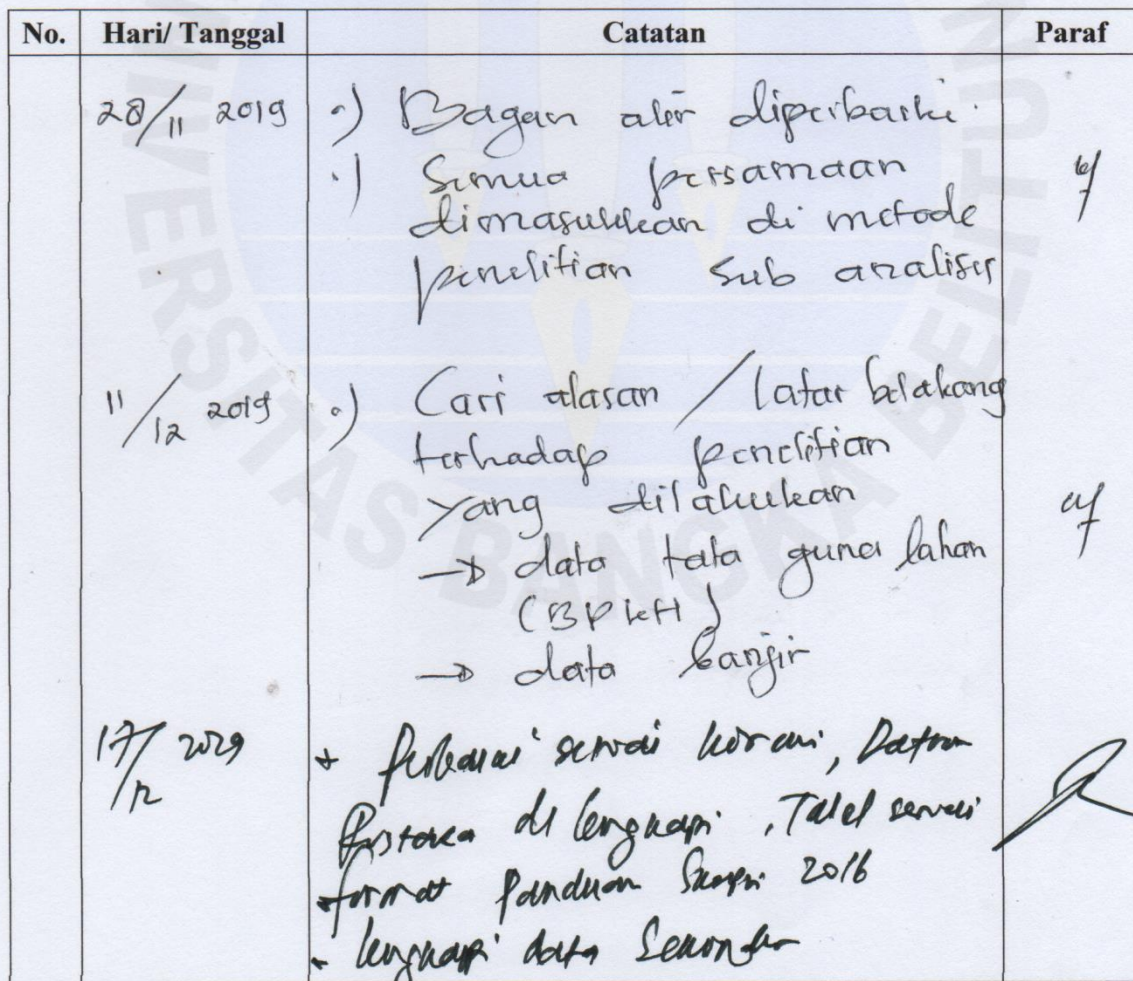 No. Hari/ Tanggal Catatan Paraf
28/11 2019 •) Bagan alir diperbaiki.
•) Semua persamaan
dimasukkan di metode
penelitian sub analisis
11/12 2019 •) Cari alasan / latar belakang
terhadap penelitian
yang dilakukan
→ data tata guna lahan
(BPKH)
→ data banjir
17/12 2019 + Perbaiki sesuai koreksi, Daftar
Pustaka dilengkapi, Tabel sesuai
format Panduan Skripsi 2016
- lengkapi data Sekunder
UNIVERSITAS BANGKA BELITUNG